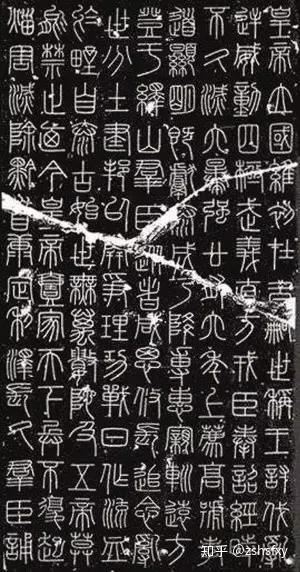 皇帝立國維初在昔嗣世稱王討伐亂
逆威動四極武義直方戎臣奉詔經時
不久滅六暴強廿有六年上薦高號孝
道顯明既獻泰成乃降專惠親巡遠方
登于繹山群臣從者咸思攸長追念亂
世分土建邦以開爭理功戰日作流血
於野自泰古始世無萬數陀及五帝莫
能禁止迺今皇帝壹家天下兵不復起
災害滅除黔首康定利澤長久群臣誦
知乎 @zshsfxy